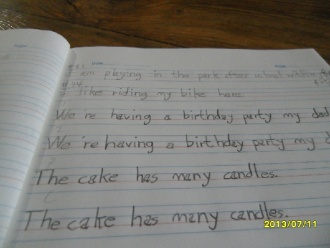 I am playing in the park after school
I like riding my bike here
We're having a birthday party my dad
We're having a birthday party my d
The cake has many candles.
The cake has many candles.
2013/07/11